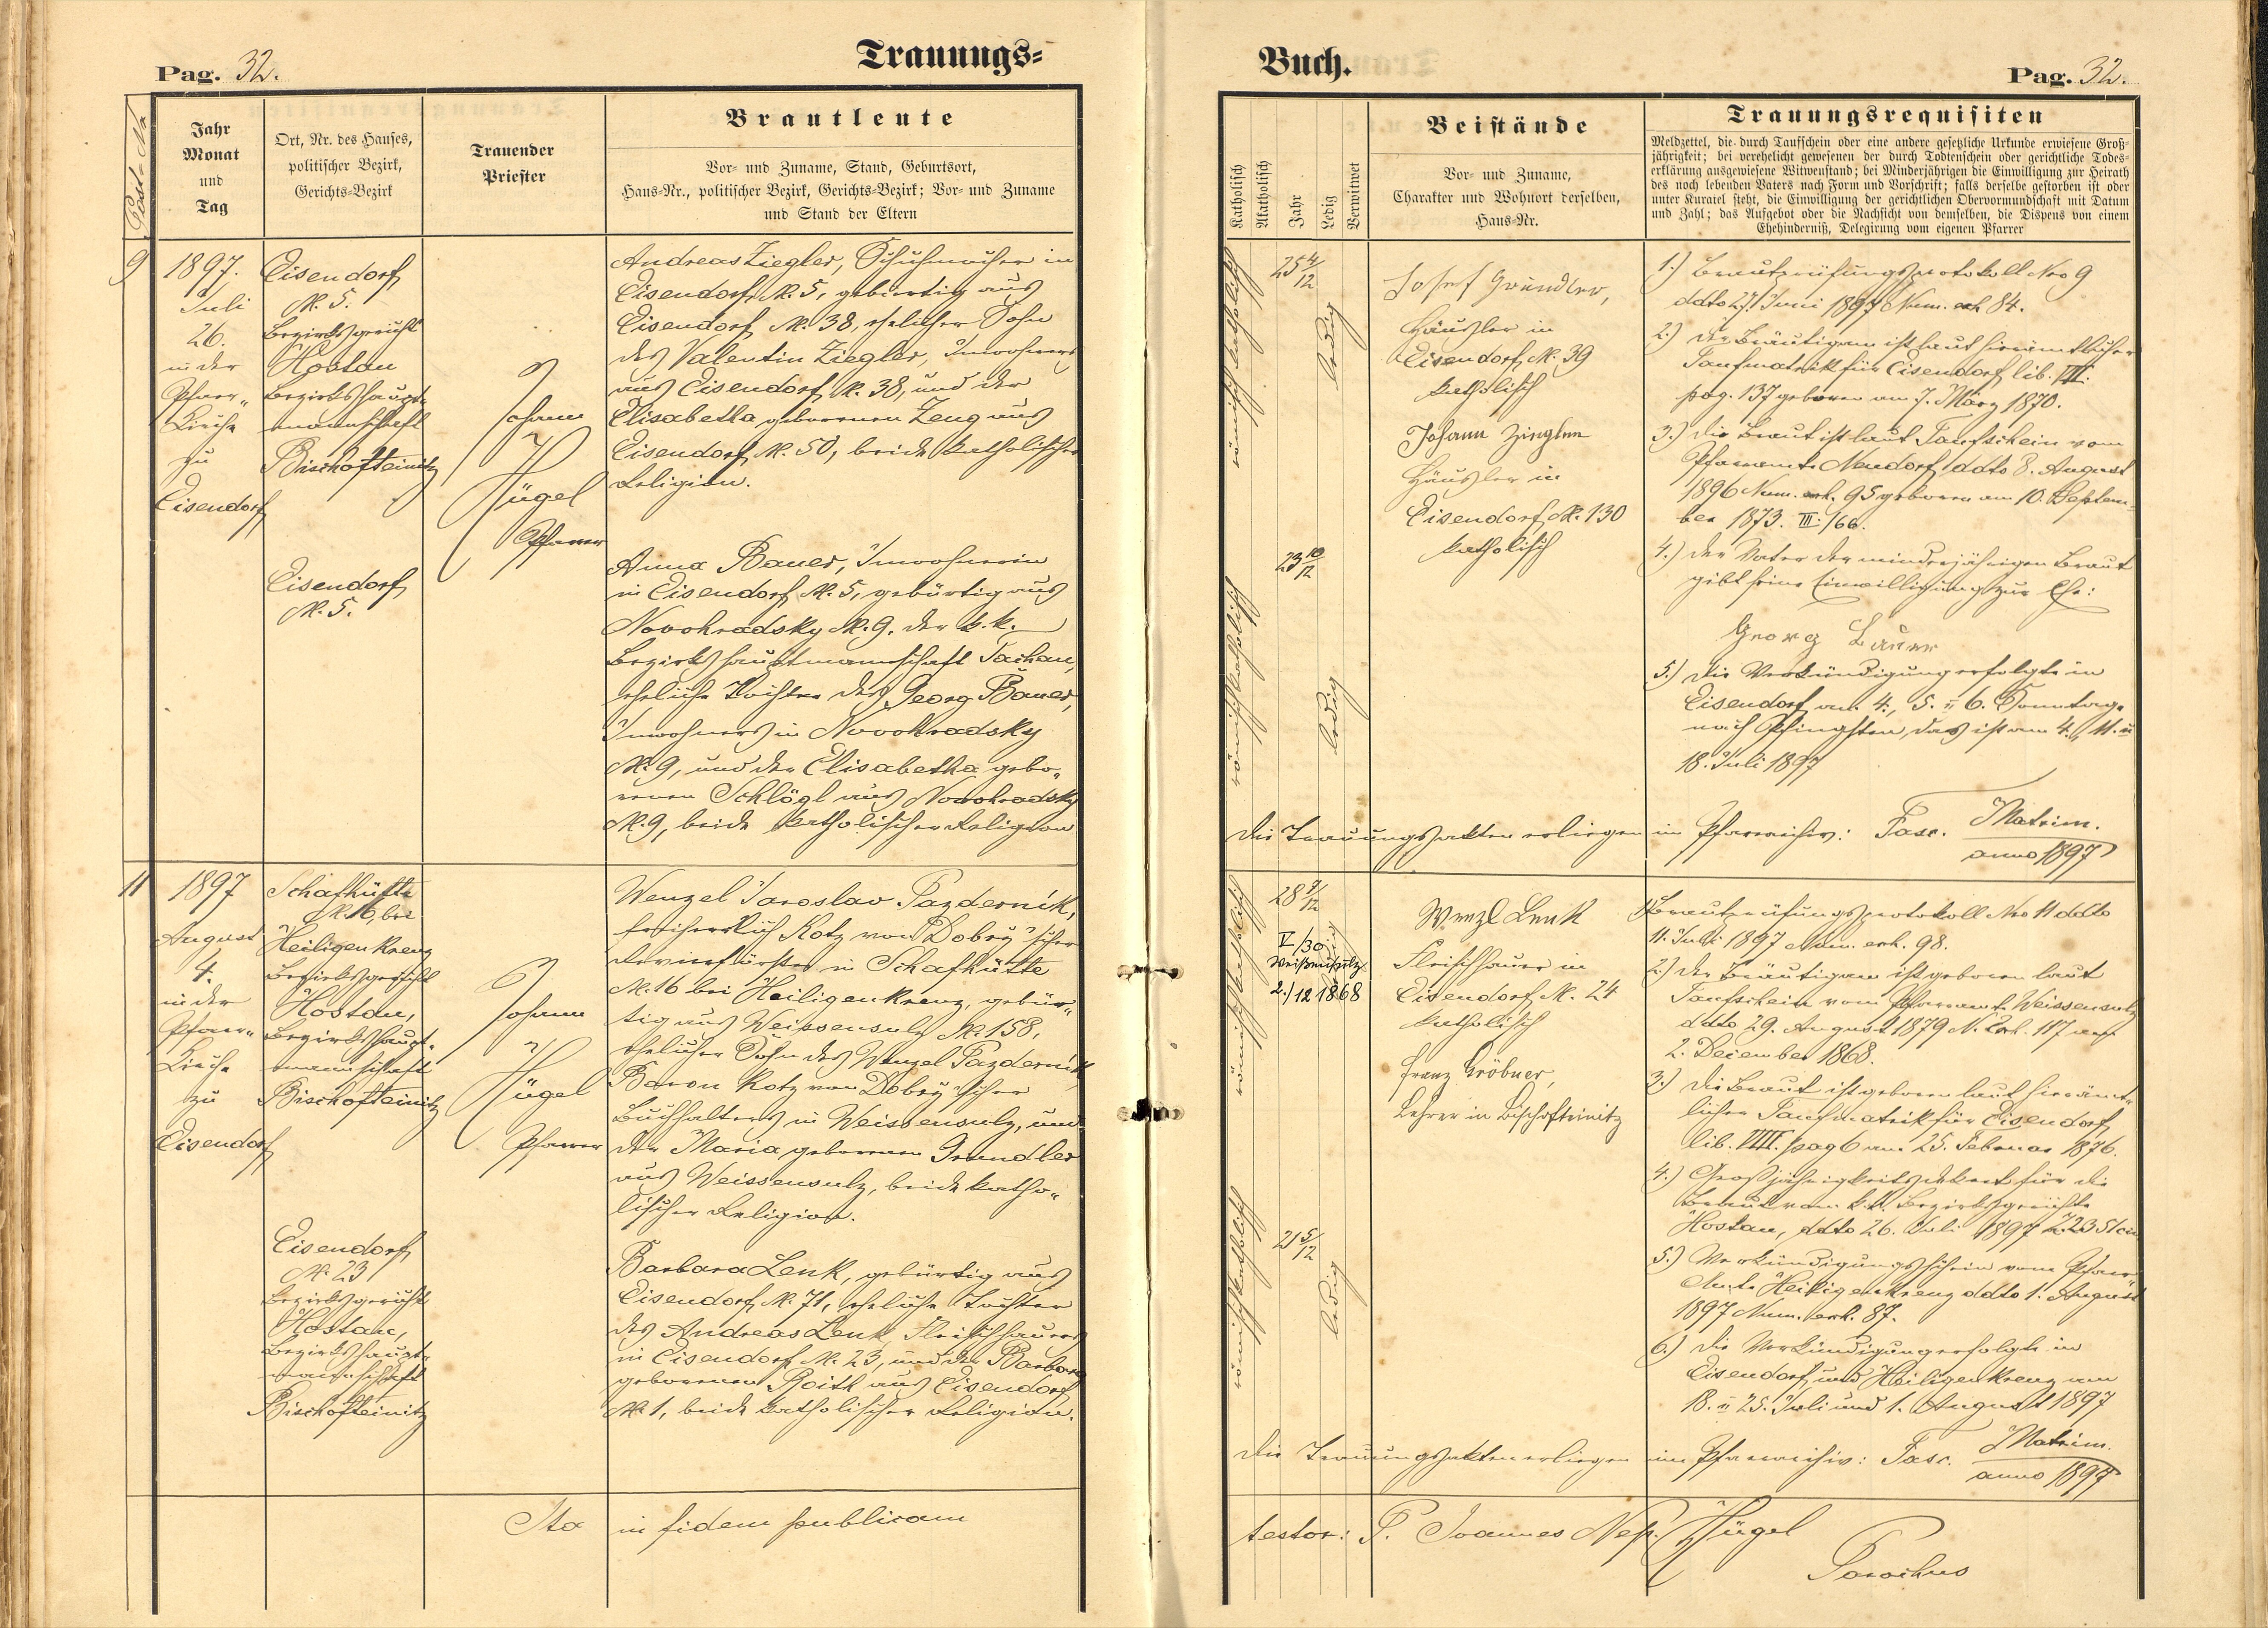 Pag. 32.
Trauungs=
Post-No
Jahr
Monat
und
Tag
Ort, Nr. des Hauses,
politischer Bezirk,
Gerichts-Bezirk
Trauender
Priester
Brautleute
Vor- und Zuname, Stand, Geburtsort,
Haus-Nr., politischer Bezirk, Gerichts-Bezirk; Vor- und Zuname
und Stand der Eltern
9
1897.
Juli
26.
in der
Pfarr„
Kirche
zu
Eisendorf
Eisendorf
N. 5.
Bezirksgericht
Hostau
Bezirkshaupt„
mannschaft
Bischofteinitz
Eisendorf
N. 5.
Johann
Hügel
Pfarrer
Andreas Ziegler, Schuhmacher in
Eisendorf N. 5, gebürtig aus
Eisendorf N. 38, ehelicher Sohn
des Valentin Ziegler, Inwohners
aus Eisendorf N. 38, und der
Elisabetha geborenen Zeug aus
Eisendorf N. 50, beide katholischer
Religion.
Anna Bauer, Inwohnerin
in Eisendorf N. 5, gebürtig aus
Novohradsky N. 9. der k. k.
Bezirkshauptmannschaft Tachau,
eheliche Tochter des Georg Bauer,
Inwohners in Novohradsky
N. 9, und der Elisabetha gebo„
renen Schlögl aus Novohradsky
N. 9, beide katholischer Religion
11
1897
August
4.
in der
Pfarr„
Kirche
zu
Eisendorf
Schafhütte
N. 16, bei
Heiligenkreuz
Bezirksgericht
Hostau,
Bezirkshaupt„
mannschaft
Bischofteinitz
Eisendorf
N. 23
Bezirksgericht
Hostau,
Bezirkshaupt„
mannschaft
Bischofteinitz
Johann
Hügel
Pfarrer
Wenzel Jaroslav Pazderník,
freiherrlich Kotz von Dobrý'scher
Revierförster in Schafhütte
N. 16 bei Heiligenkreuz, gebür„
tig aus Weissensulz N. 158,
ehelicher Sohn des Wenzel Pazderník
Baron Kotz von Dobrý'scher
Buchhalters in Weissensulz, und
der Maria geborenen Grundler
aus Weissensulz, beide katho„
lischer Religion.
Barbara Lenk, gebürtig aus
Eisendorf N. 71, eheliche Tochter
des Andreas Lenk Fleischhauers
in Eisendorf N. 23, und der Barbara
geborenen Roith aus Eisendorf
N. 1, beide katholischer Religion.
Ita in fidem publicam
Buch.
Pag. 32.
Katholisch
Akatholisch
Jahr
Ledig
Verwitwet
Beistände
Vor- und Zuname,
Charakter und Wohnort derselben,
Haus-Nr.
Trauungsrequisiten
Meldzettel, die durch Taufschein oder eine andere gesetzliche Urkunde erwiesene Groß-
jährigkeit; bei verehelicht gewesenen der durch Todtenschein oder gerichtliche Todes-
erklärung ausgewiesene Witwenstand; bei Minderjährigen die Einwilligung zur Heirath
des noch lebenden Vaters nach Form und Vorschrift; falls derselbe gestorben ist oder
unter Kuratel steht, die Einwilligung der gerichtlichen Obervormundschaft mit Datum
und Zahl; das Aufgebot oder die Nachsicht von demselben, die Dispens von einem
Ehehinderniß, Delegirung vom eigenen Pfarrer
römisch katholisch
25 4/12
ledig
römisch katholisch
23 10/12
ledig
Josef Gründler,
Häusler in
Eisendorf N. 39
katholisch
Johann Zingler
Häusler in
Eisendorf N. 130
katholisch
1.) Brautprüfungsprotokoll Nro 9
ddto 27. Juni 1897 Num. exh. 84.
2.) Der Bräutigam ist laut hierämtlicher
Taufmatrik für Eisendorf lib. VII.
pag. 137 geboren am 7. März 1870.
3.) Die Braut ist laut Taufschein vom
Pfarramte Neudorf ddto 8. August
1896 Num. exh. 95 geboren am 10. Septem„
ber 1873. III./66.
4.) Der Vater der minderjährigen Braut
gibt seine Einwilligung zur Ehe:
Georg Bauer
5.) Die Verkündigung erfolgte in
Eisendorf am 4., 5. u 6. Sonntage
nach Pfingsten, das ist am 4., 11. u
18. Juli 1897
Die Trauungsakten erliegen im Pfarrarchiv: Fasc. Matrim.
anno 1897
römisch katholisch
28 8/12
V/30
Weißensulz
2./12 1868
römisch katholisch
21 5/12
ledig
Wenzl Lenk
Fleischhauer in
Eisendorf N. 24
katholisch
Franz Gröbner,
Lehrer in Bischofteinitz
1.) Brautprüfungsprotokoll Nro 11 ddto
11. Juli 1897 Num. exh. 98.
2.) Der Bräutigam ist geboren laut
Taufschein vom Pfarramte Weissensulz
ddto 29. August 1879 N. Exh. 117 am
2. December 1868.
3.) Die Braut ist geboren laut hierämt„
licher Taufmatrik für Eisendorf
lib. VIII. pag 6 am 25. Februar 1876.
4.) Großjährigkeitsdekret für die
Braut vom k. k. Bezirksgerichte
Hostau, ddto 26. Juli 1897
5.) Verkündigungsschein vom Pfarr„
Amte Heiligenkreuz ddto 1. August
1897 Num. exh. 87.
6.) Die Verkündigung erfolgte in
Eisendorf und Heiligenkreuz am
18. u 25. Juli und 1. August 1897
Die Trauungsakten erliegen im Pfarrarchiv: Fasc. Matrim.
anno 1897
testor: P. Joannes Nep. Hügel
Parochus